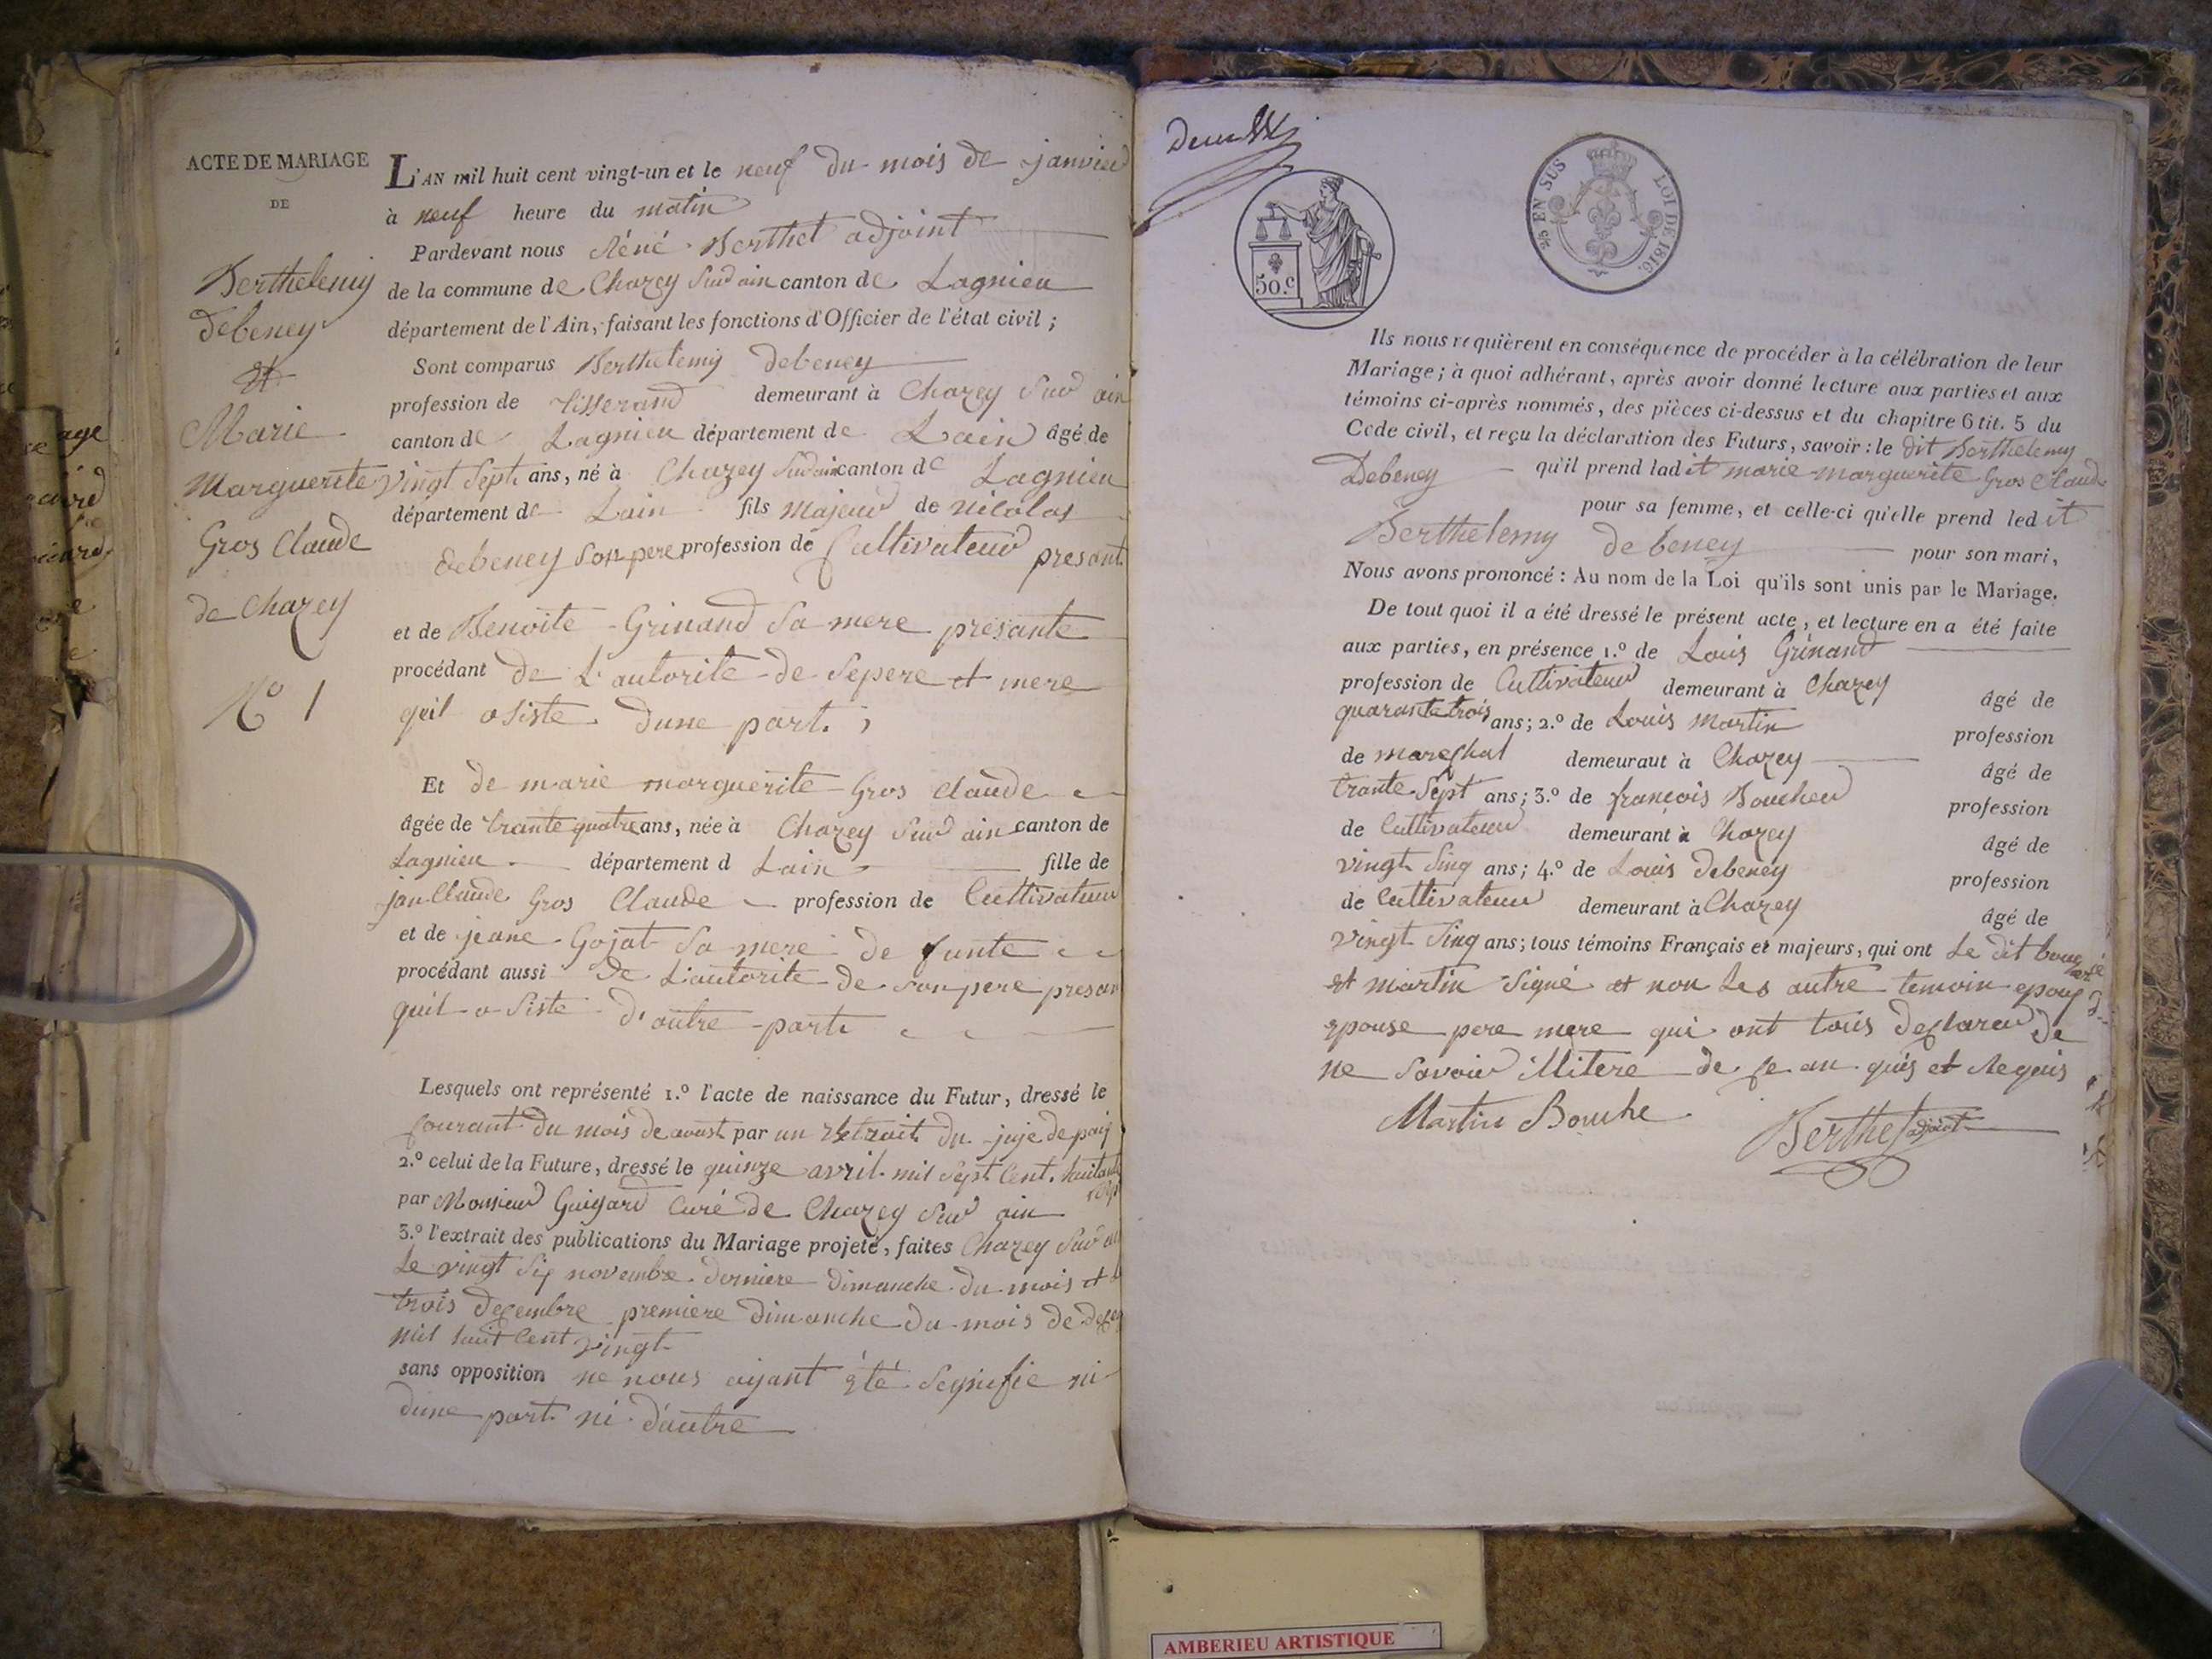 ACTE DE MARIAGE
DE
Berthelemy
debeney
et
Marie
Marguerite
Gros Claude
de Chazey
No 1
L'AN mil huit cent vingt-un et le neuf du mois de janvier
à neuf heure du matin
Pardevant nous Réné Berthet adjoint
de la commune de Chazey Sur ain canton de Lagnieu
département de l'Ain, faisant les fonctions d'Officier de l'état civil ;
Sont comparus Berthelemy debeney
profession de tisserand demeurant à Chazey Sur ain
canton de Lagnieu département de Lain âgé de
vingt Sept ans, né à Chazey Sur ain canton de Lagnieu
département de Lain fils majeur de nicolas
debeney Son pere profession de Cultivateur presant
et de Benoite Grinand Sa mere présante
procédant de L'autorite de Sepere et mere
quil asiste dune part ;
Et de marie marguerite Gros claude
âgée de trante quatre ans, née à Chazey Sur ain canton de
Lagnieu département d Lain fille de
jan Claude Gros Claude profession de Cultivateur
et de jeane Gojat Sa mere de funte
procédant aussi De L'autorite de Son pere presan
quil a Siste d'autre part
Lesquels ont représenté 1.º l'acte de naissance du Futur, dressé le
courant du mois de avust par un Extrait du juje de paij
2.º celui de la Future, dressé le quinze avril mil Sept Cent. huitante
Sept
par Monsieur Guigard Curé de Chazey Sur ain
3.º l'extrait des publications du Mariage projeté, faites Chazey Sur ain
Le vingt Six novembre derniere dimanche du mois et le
trois decembre premiere dimanche du mois de decem
mil huit Cent vingt
sans opposition ne nous ayant été Segnifie ni
dune part ni d'autre
50.c
EN SUS
LOI DE 1816.
Ils nous requièrent en conséquence de procéder à la célébration de leur
Mariage ; à quoi adhérant, après avoir donné lecture aux parties et aux
témoins ci-après nommés, des pièces ci-dessus et du chapitre 6 tit. 5 du
Code civil, et reçu la déclaration des Futurs, savoir : le dit Berthelemy
Debeney qu'il prend ladit marie marguerite Gros Claude
pour sa femme, et celle-ci qu'elle prend led it
Berthelemy de beney pour son mari,
Nous avons prononcé : Au nom de la Loi qu'ils sont unis par le Mariage.
De tout quoi il a été dressé le présent acte, et lecture en a été faite
aux parties, en présence 1.º de Louis Grinand
profession de Cultivateur demeurant à Chazey âgé de
quarante trois ans ; 2.º de Louis Martin profession
de mareshal demeuraut à Chazey âgé de
trante Sept ans ; 3.º de françois Boucher profession
de Cultivateur demeurant à Chazey âgé de
vingt Sinq ans ; 4.º de Louis Debeney profession
de Cultivateur demeurant à Chazey âgé de
vingt Sinq ans ; tous témoins Français et majeurs, qui ont Le dit
et martin Signé et non Les autre temoin epoux
epouse pere mere qui ont tous declarer de
ne Savoir illitere de ce an quis et Requis
Martin Bouche
Berthet adjoint
AMBERIEU ARTISTIQUE